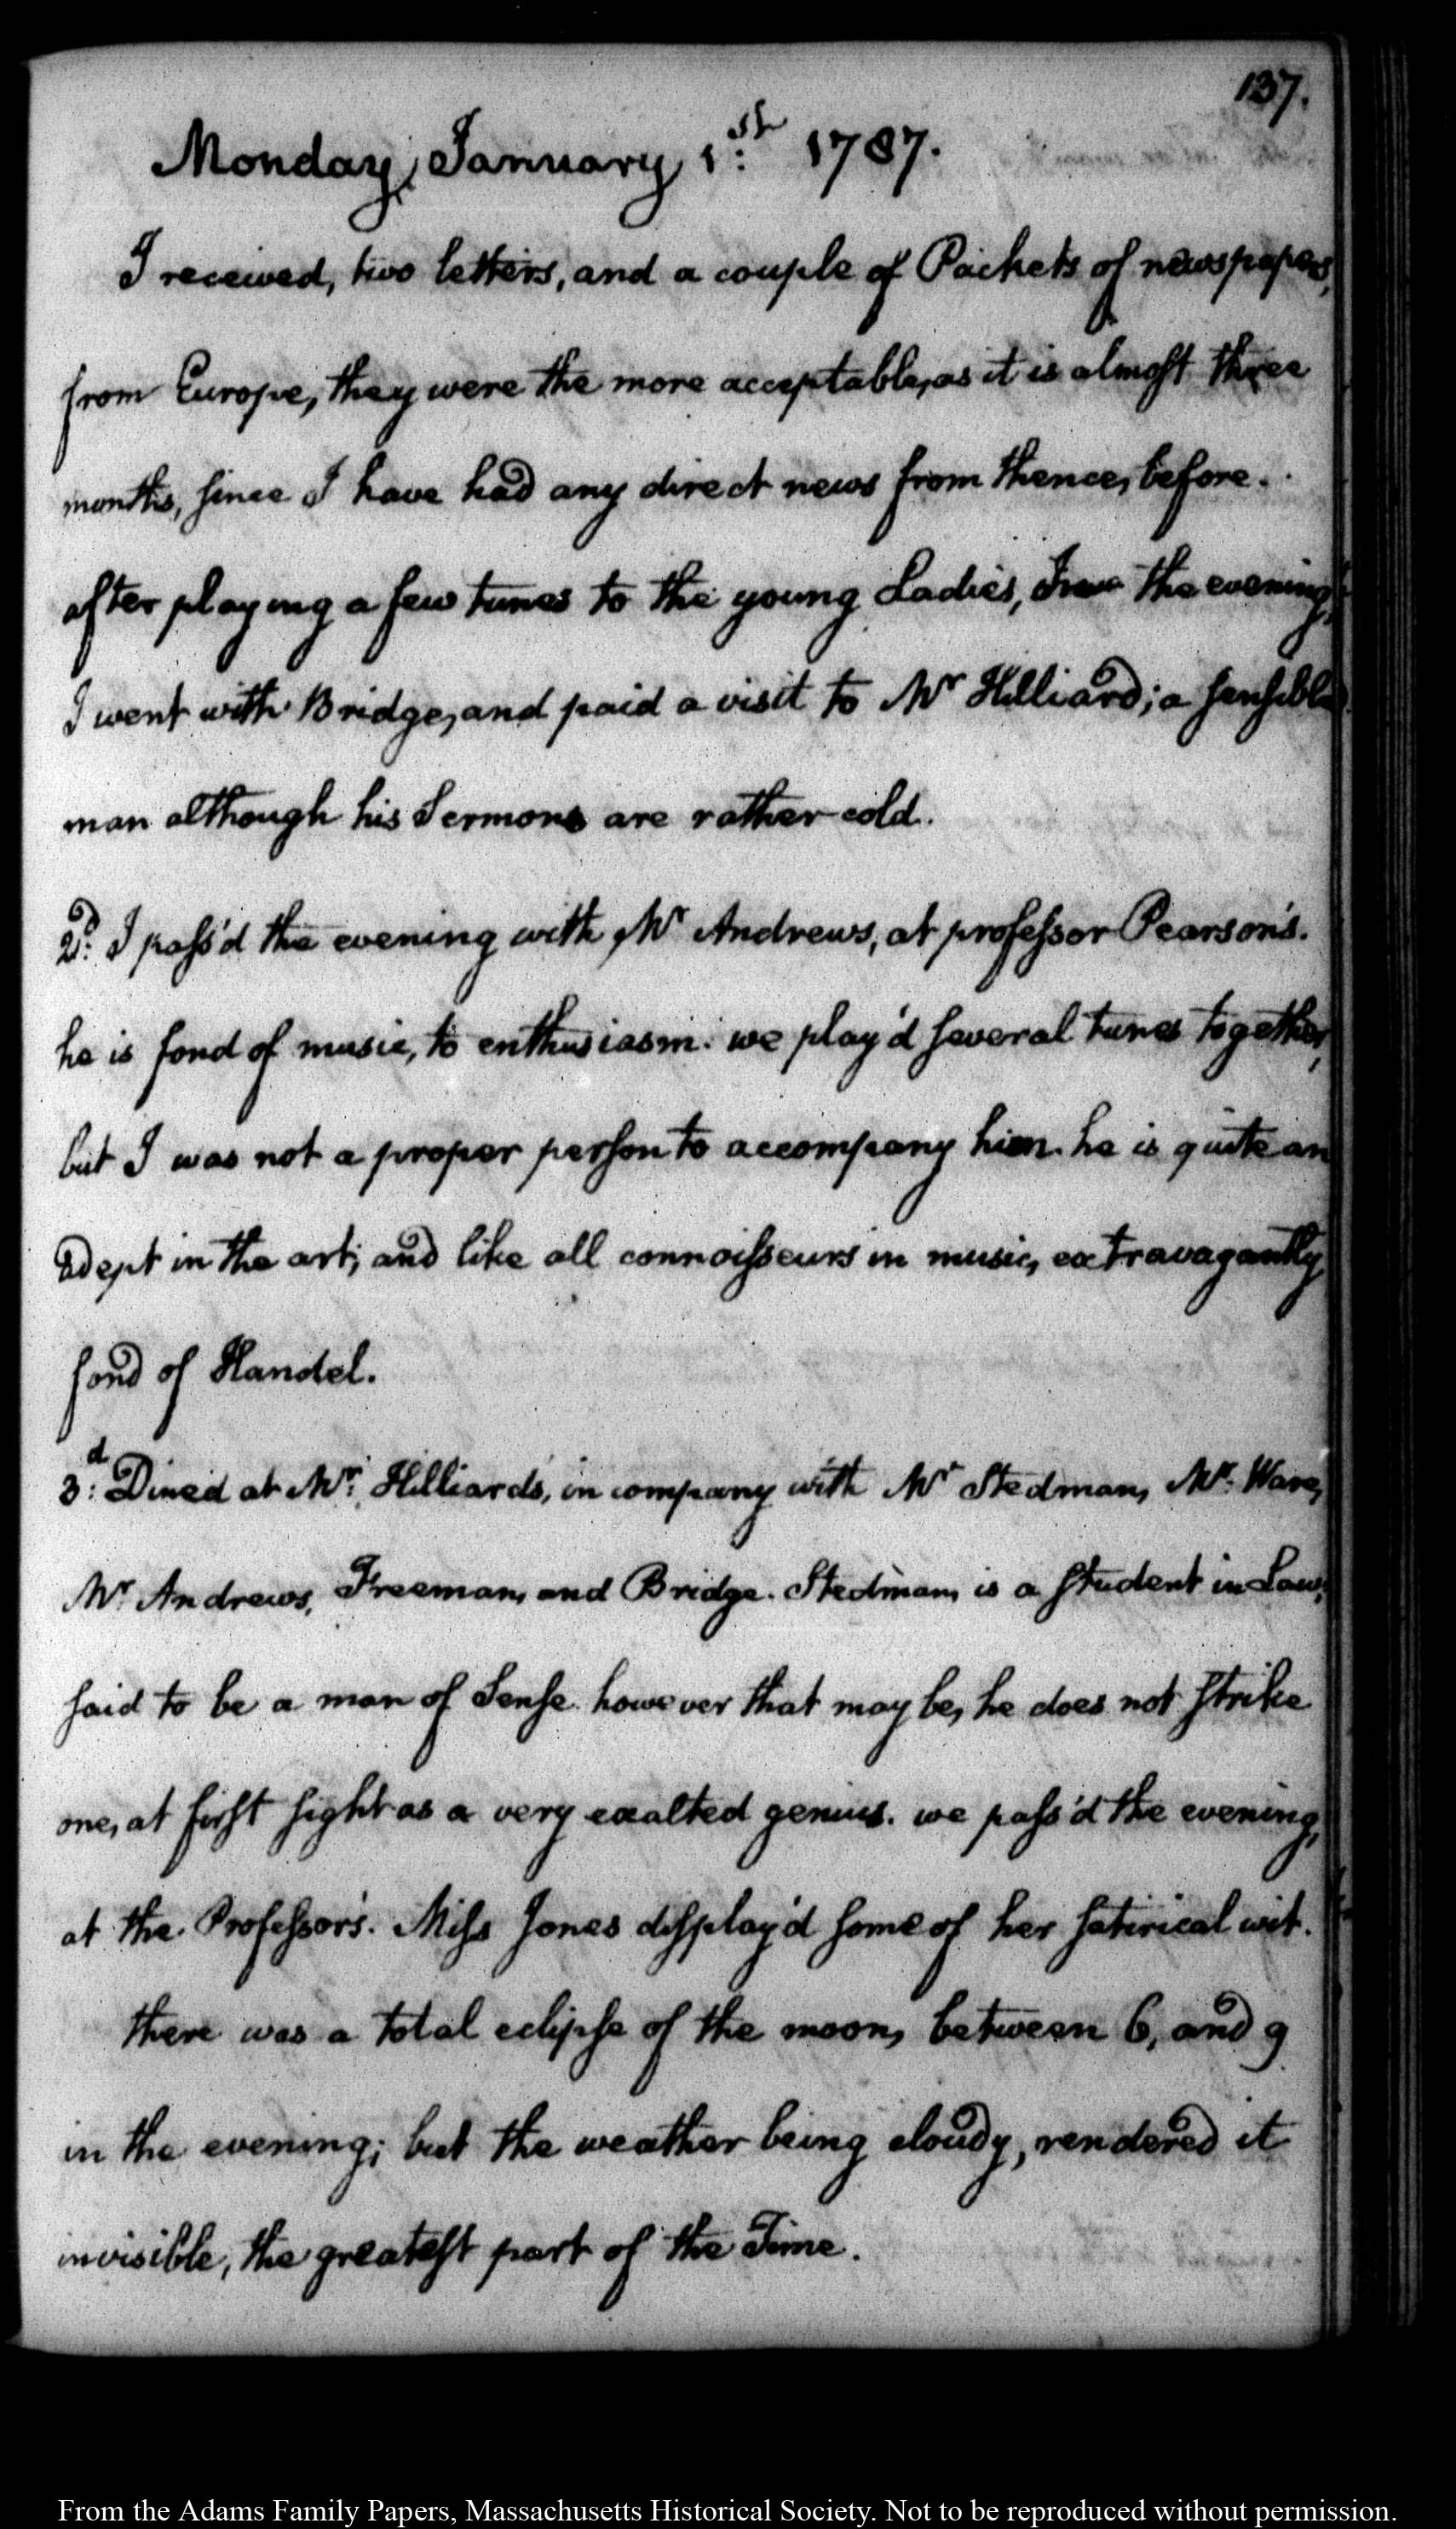 137.
Monday, January 1.st 1787.
I received, two letters, and a couple of Packets of newspapers,
from Europe, they were the more acceptable, as it is almost three
months, since I have had any direct news from thence, before.
after playing a few tunes to the young Ladies, the evening,
I went with Bridge, and paid a visit to Mr Hilliard; a sensible
man although his Sermons are rather cold.
2d. I pass'd the evening with Mr Andrews, at professor Pearson's.
he is fond of music, to enthusiasm. we play'd several tunes together,
but I was not a proper person to accompany him. he is quite an
adept in the art; and like all connoisseurs in music, extravagantly
fond of Handel.
3d. Dined at Mr. Hilliard's, in company with Mr Stedman, Mr. Ware,
Mr. Andrews, Freeman, and Bridge. Stedman, is a student in Law,
said to be a man of Sense. however that may be, he does not strike
one, at first sight as a very exalted genius. we pass'd the evening,
at the Professor's. Miss Jones display'd some of her satirical wit.
there was a total eclipse of the moon, between 6, and 9
in the evening; but the weather being cloudy, rendered it
invisible, the greatest part of the Time.
From the Adams Family Papers, Massachusetts Historical Society. Not to be reproduced without permission.